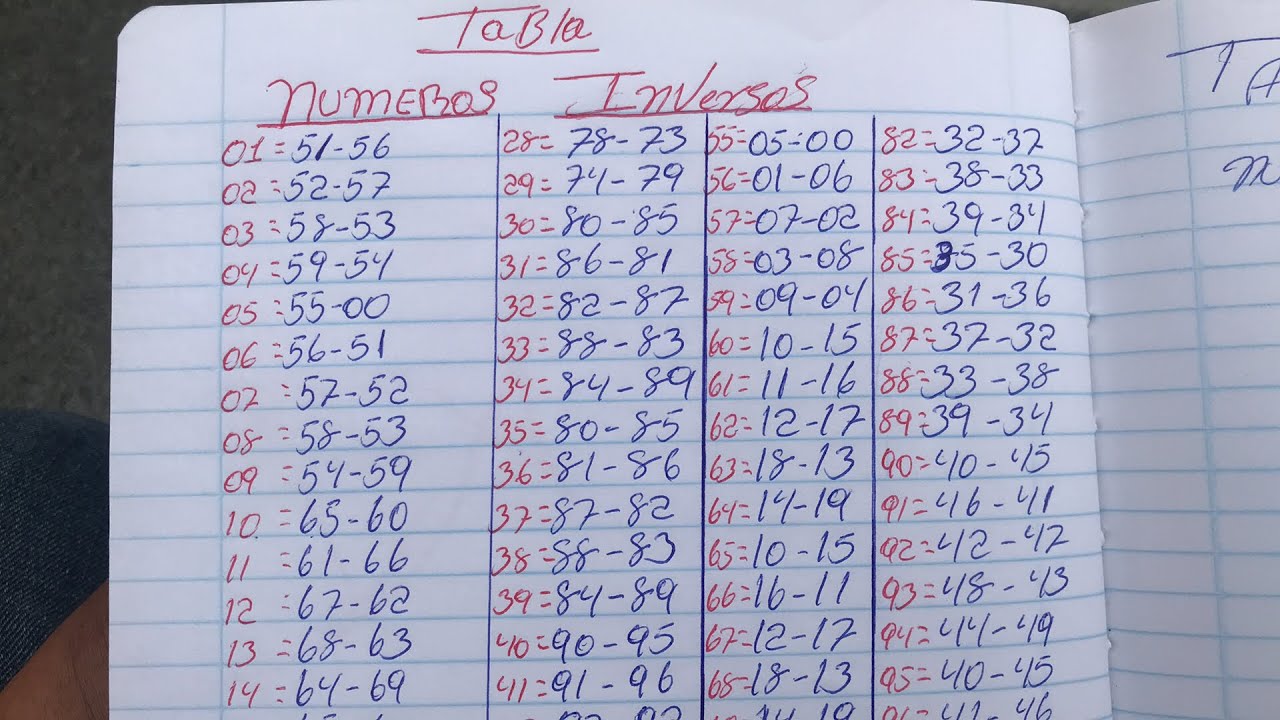 TaBla
NUMEROS InVersos
01=51-56
02=52-57
03=58-53
04=59-54
05=55-00
06=56-51
07=57-52
08=58-53
09=54-59
10=65-60
11=61-66
12=67-62
13=68-63
14=64-69
28=78-73
29=74-79
30=80-85
31=86-81
32=82-87
33=88-83
34=84-89
35=80-85
36=81-86
37=87-82
38=88-83
39=84-89
40=90-95
41=91-96
55=05-00
56=01-06
57=07-02
58=03-08
59=09-04
60=10-15
61=11-16
62=12-17
63=18-13
64=14-19
65=10-15
66=16-11
67=12-17
68=18-13
82=32-37
83=38-33
84=39-34
85=35-30
86=31-36
87=37-32
88=33-38
89=39-34
90=40-45
91=46-41
92=42-47
93=48-43
94=44-49
95=40-45
TA
m